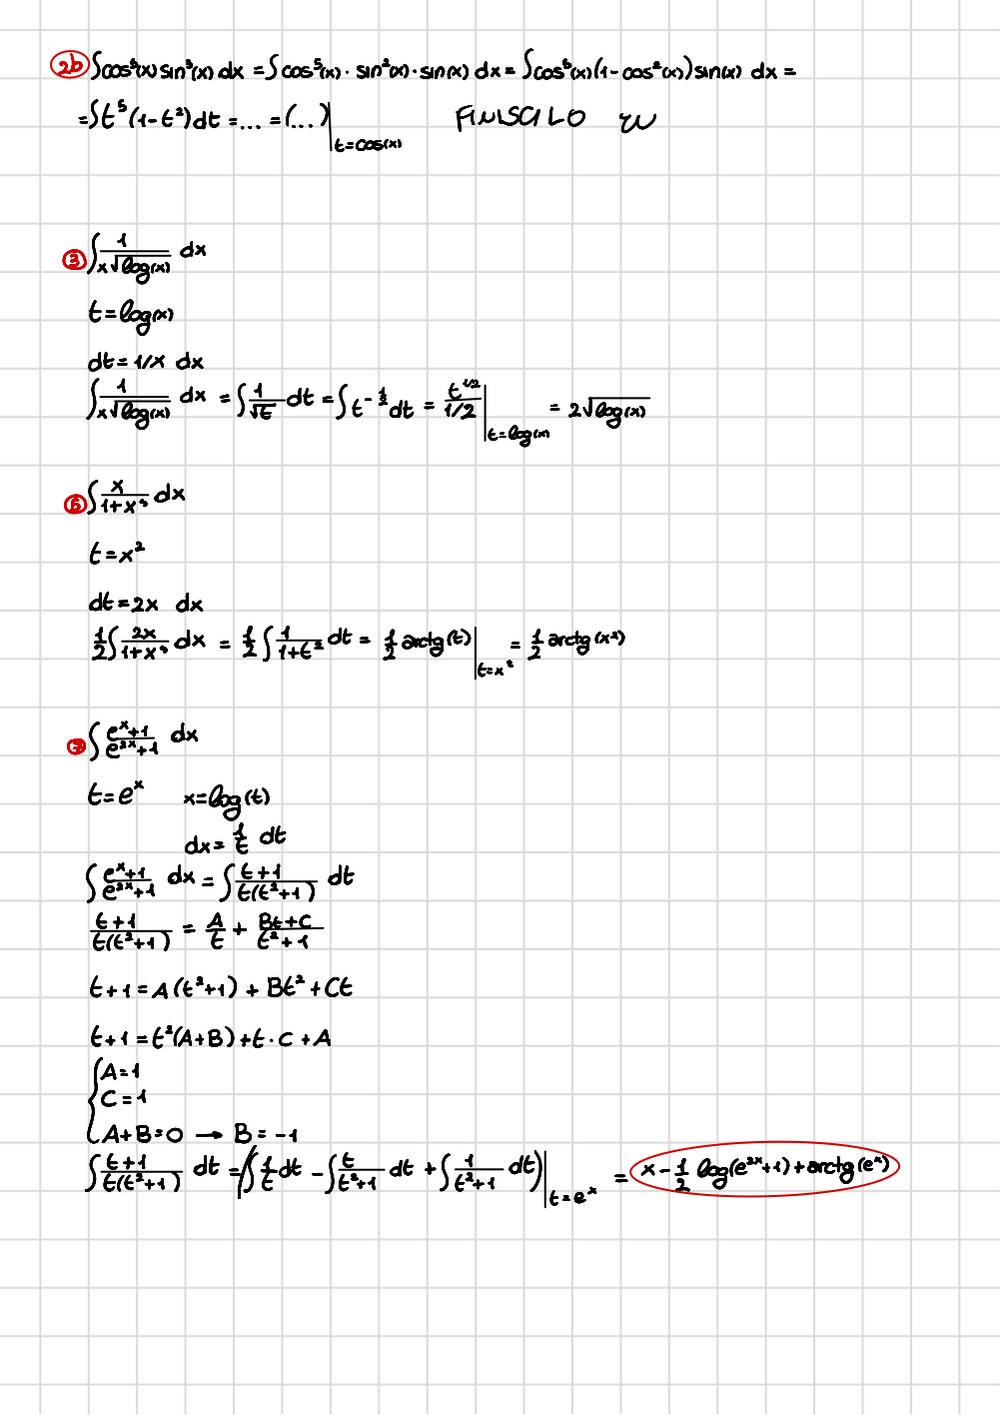 2b ∫cos⁵(x) sin³(x) dx = ∫ cos⁵(x) · sin²(x) · sin(x) dx = ∫cos⁵(x)(1 - cos²(x)) sin(x) dx =
= ∫t⁵(1-t²)dt = ... = (...)|t=cos(x) FINISCILO
3 ∫ 1/(x√log(x)) dx
t = log(x)
dt = 1/x dx
∫ 1/(x√log(x)) dx = ∫ 1/√t dt = ∫ t^(-1/2) dt = t^(1/2)/(1/2) |t=log(x) = 2√log(x)
6 ∫ x/(1+x⁴) dx
t = x²
dt = 2x dx
1/2 ∫ 2x/(1+x⁴) dx = 1/2 ∫ 1/(1+t²) dt = 1/2 arctg(t) |t=x² = 1/2 arctg(x²)
7 ∫ (e^x+1)/(e^2x+1) dx
t = e^x x = log(t)
dx = 1/t dt
∫ (e^x+1)/(e^2x+1) dx = ∫ (t+1)/(t(t²+1)) dt
(t+1)/(t(t²+1)) = A/t + (Bt+C)/(t²+1)
t+1 = A(t²+1) + Bt² + Ct
t+1 = t²(A+B) + t·C + A
{A=1
C=1
A+B=0 → B=-1
∫ (t+1)/(t(t²+1)) dt = (∫ 1/t dt - ∫ t/(t²+1) dt + ∫ 1/(t²+1) dt)|t=e^x = x - 1/2 log(e^2x+1) + arctg(e^x)